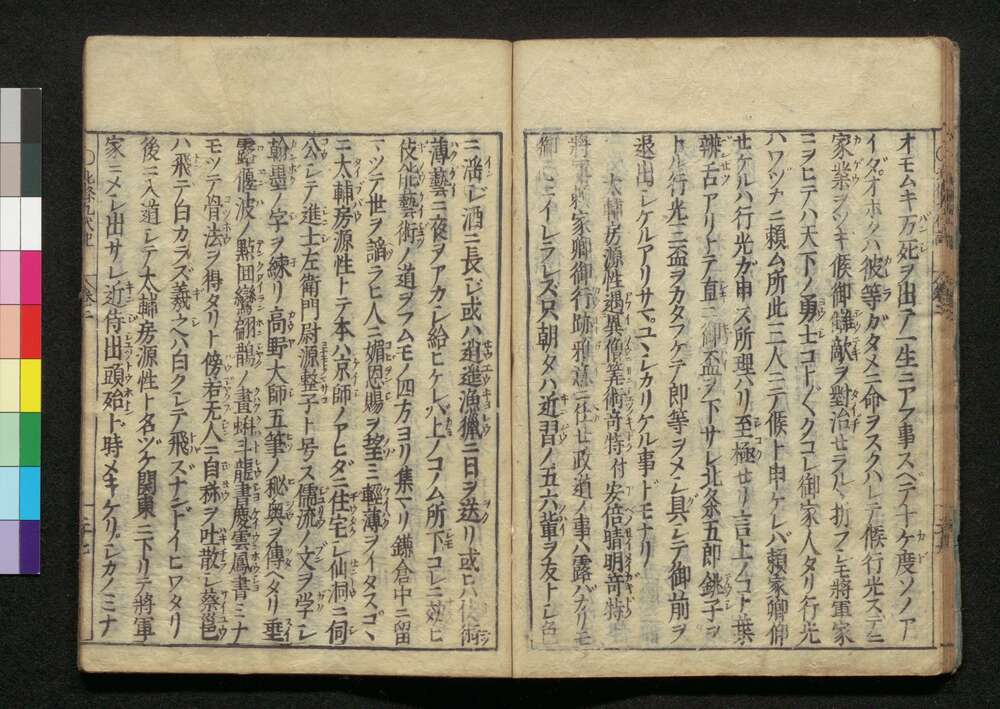 オモムキ万死ヲ出テ一生ニアフ事スベテ十ケ度ソノア
イダオホクハ彼等ガタメニ命ヲスクハレテ候行光ステニ
家業ヲツギ候御讎敵ヲ對治セラルヽ折フシモ將軍家
ニヲヒテハ天下ノ勇士コト〲クコレ御家人タリ行光
ハワヅカニ頼ム所此三人ニテ候ト申ケレバ頼家卿仰
セケルハ行光ガ申ス所理ハリ至極セリ言上ノコト葉
辨舌アリトテ直ニ御盃ヲ下サレ北条五郎銚子ヲ
トル行光三盃ヲカタフケテ郎等ヲメシ具シテ御前ヲ
退出シケルアリサマユヽシカリケル事トモナリ
太輔房源性遇異僧算術竒特付安倍晴明竒特
將軍頼家卿御行跡雅意ニ任セ政道ノ事ハ露バカリモ
御心ニイレラレズ只朝夕ハ近習ノ五六輩ヲ友トシ色
ニ婬シ酒ニ長ジ或ハ逍遥漁獵ニ日ヲ送リ或ハ伎術
薄藝ニ夜ヲアカシ給ヒケレバ上ノコノム所下コレニ効ヒ
伎能藝術ノ道ヲフムモノ四方ヨリ集マリ鎌倉中ニ留
マツテ世ヲ謟ラヒ人ニ媚恩賜ヲ望ミ輕薄ヲイタスコヽ
ニ太輔房源性トテ本ハ京師ノアヒダニ住宅シ仙洞ニ伺
公シテ進士左衛門尉源整子ト号ス儒流ノ文ヲ学シ
翰墨ノ字ヲ練リ高野大師五筆ノ秘奥ヲ傳ヘタリ垂
露偃波ノ點回鸞翩鵲ノ畫蚪斗龍書慶雲鳳書ミナ
モツテ骨法ヲ得タリト傍若无人ニ自稱ヲ吐散シ蔡邕
ハ飛テ白カラズ羲之ハ白クシテ飛ズナンドイヒワタリ
後ニ入道シテ太輔房源性ト名ヅケ関東ニ下リテ將軍
家ニメシ出サレ近侍出頭殆ド時メキケリシカノミナ